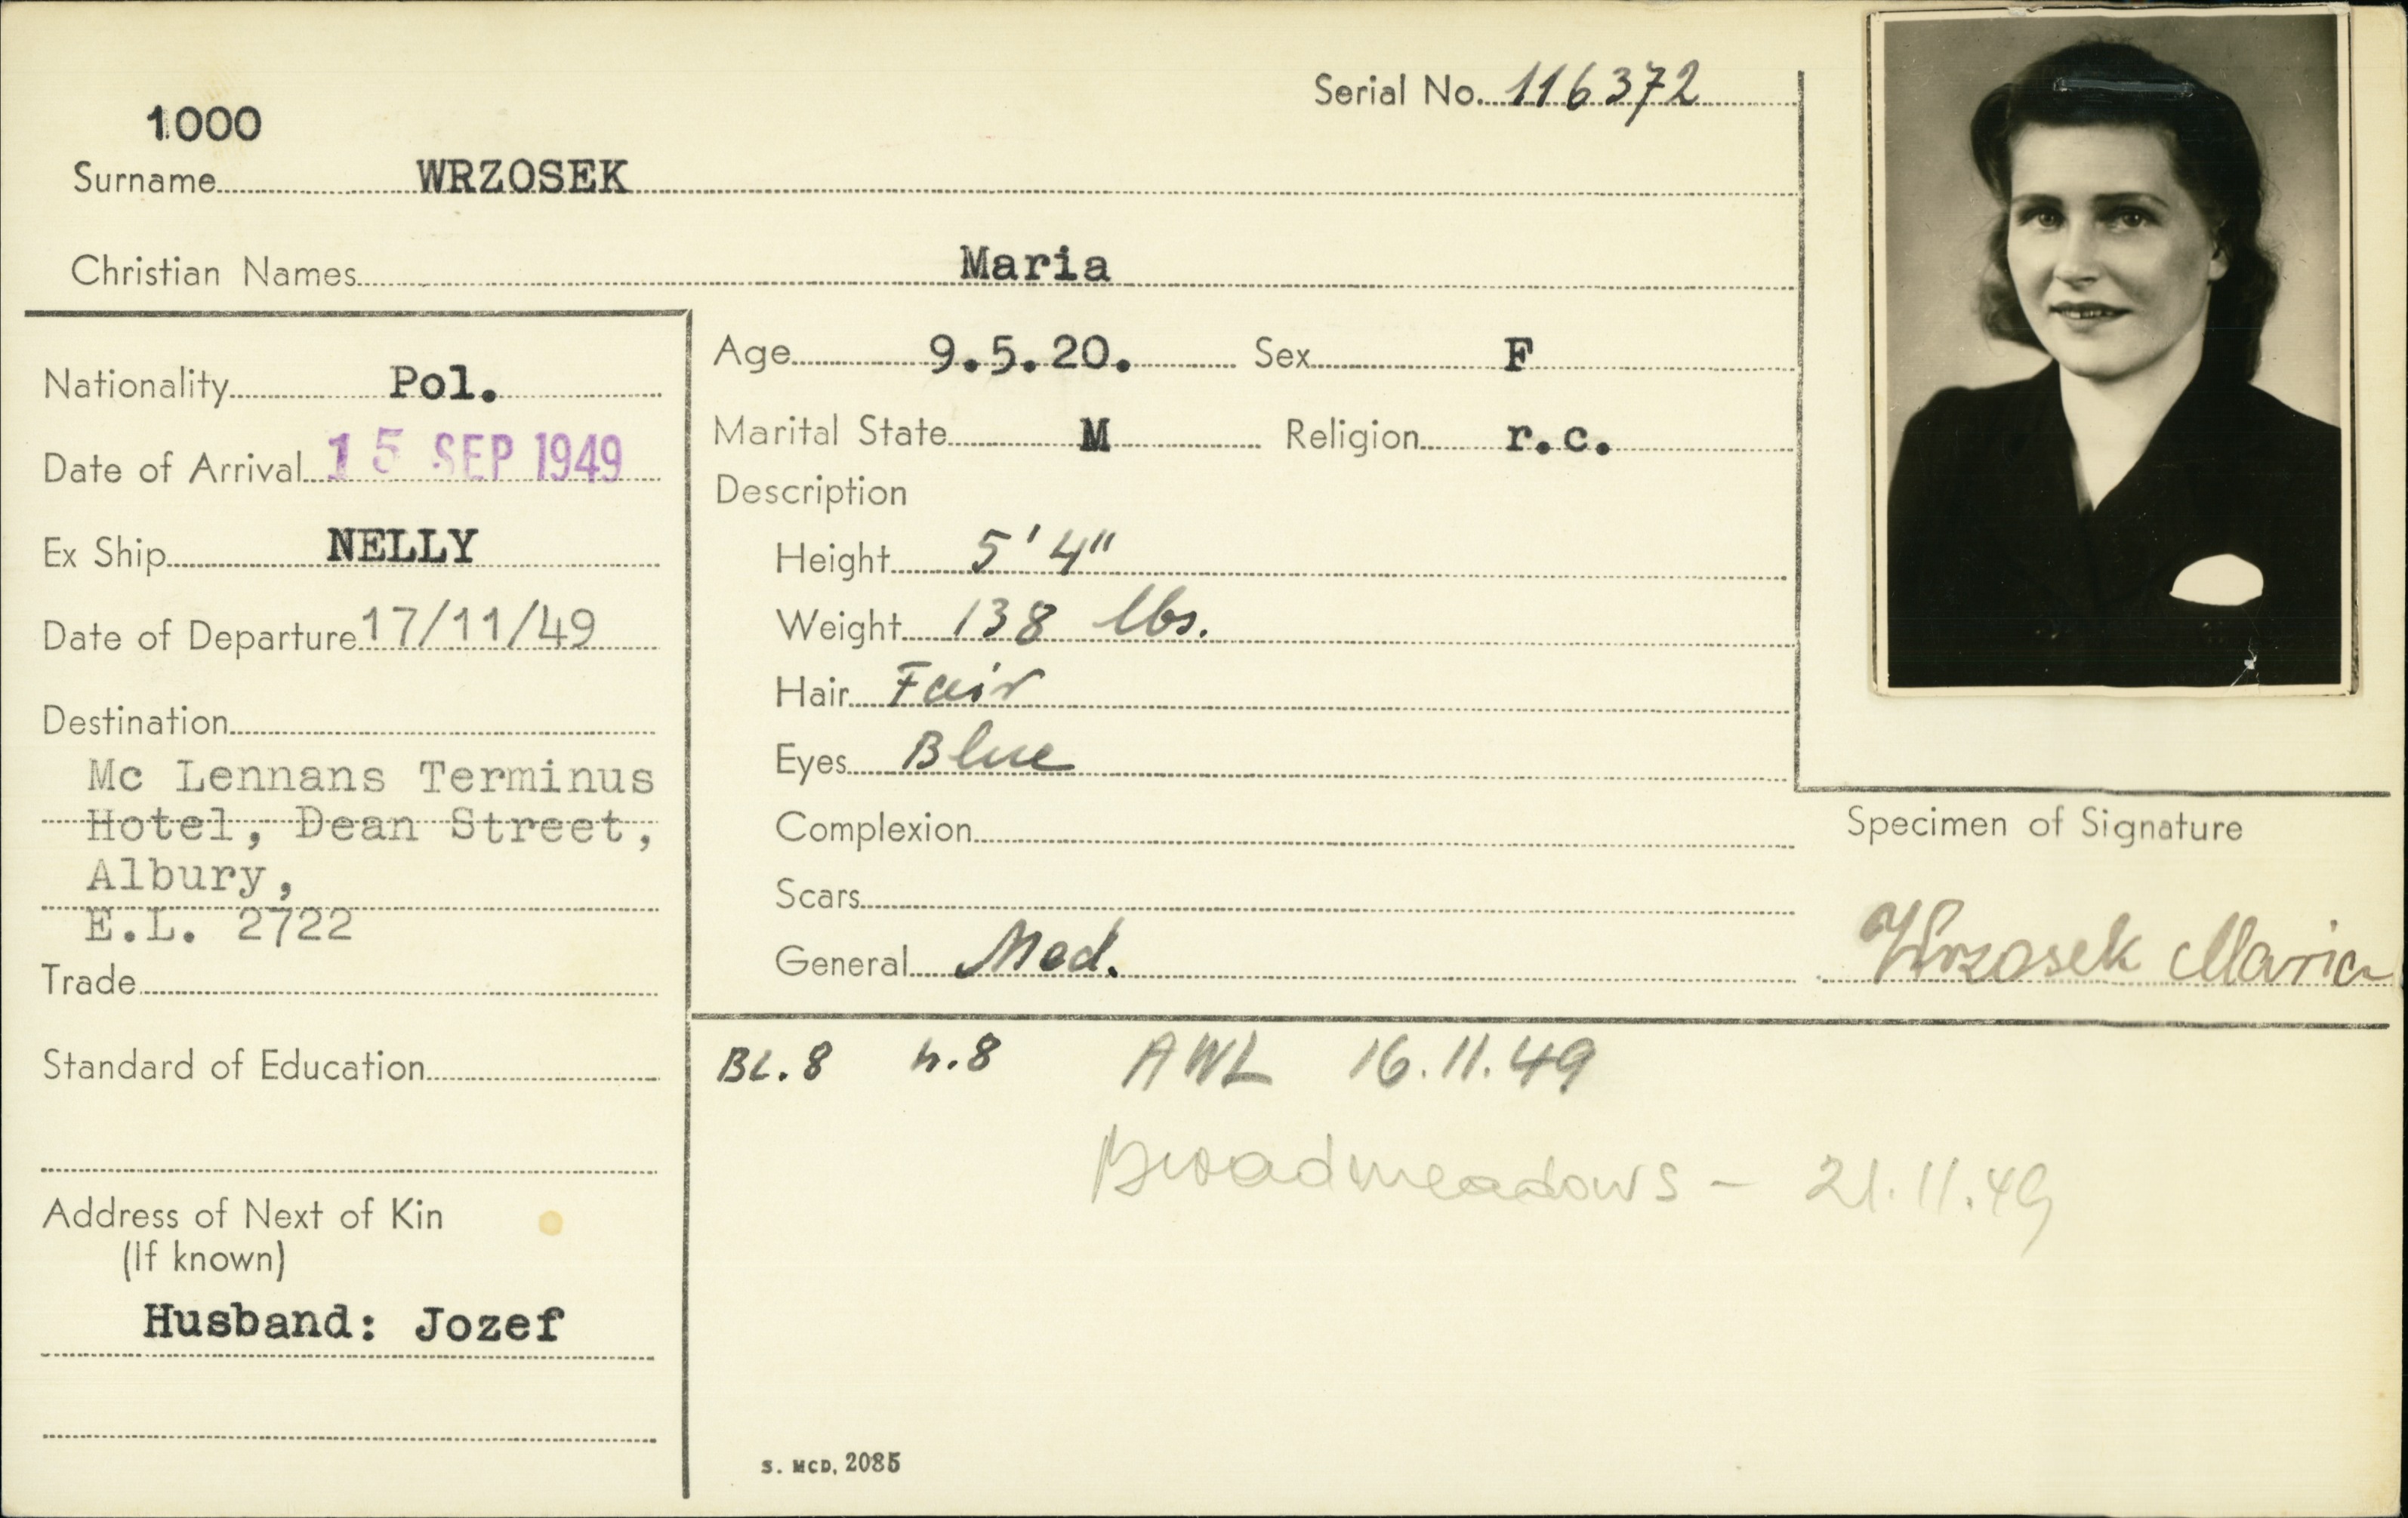 Serial No. 116372
1000
Surname WRZOSEK
Christian Names Maria
Nationality Pol.
Date of Arrival 15 SEP 1949
Ex Ship NELLY
Date of Departure 17/11/49
Destination
Mc Lennans Terminus
Hotel, Dean Street,
Albury,
E.L. 2722
Trade
Standard of Education
Address of Next of Kin
(If known)
Husband: Jozef
Age 9.5.20. Sex F
Marital State M Religion r.c.
Description
Height 5'4"
Weight 138 lbs.
Hair Fair
Eyes Blue
Complexion
Scars
General Med.
Specimen of Signature
Wrzosek Maria
BL.8 h.8 AWL 16.11.49
Broadmeadows - 21.11.49
S. MCD, 2085